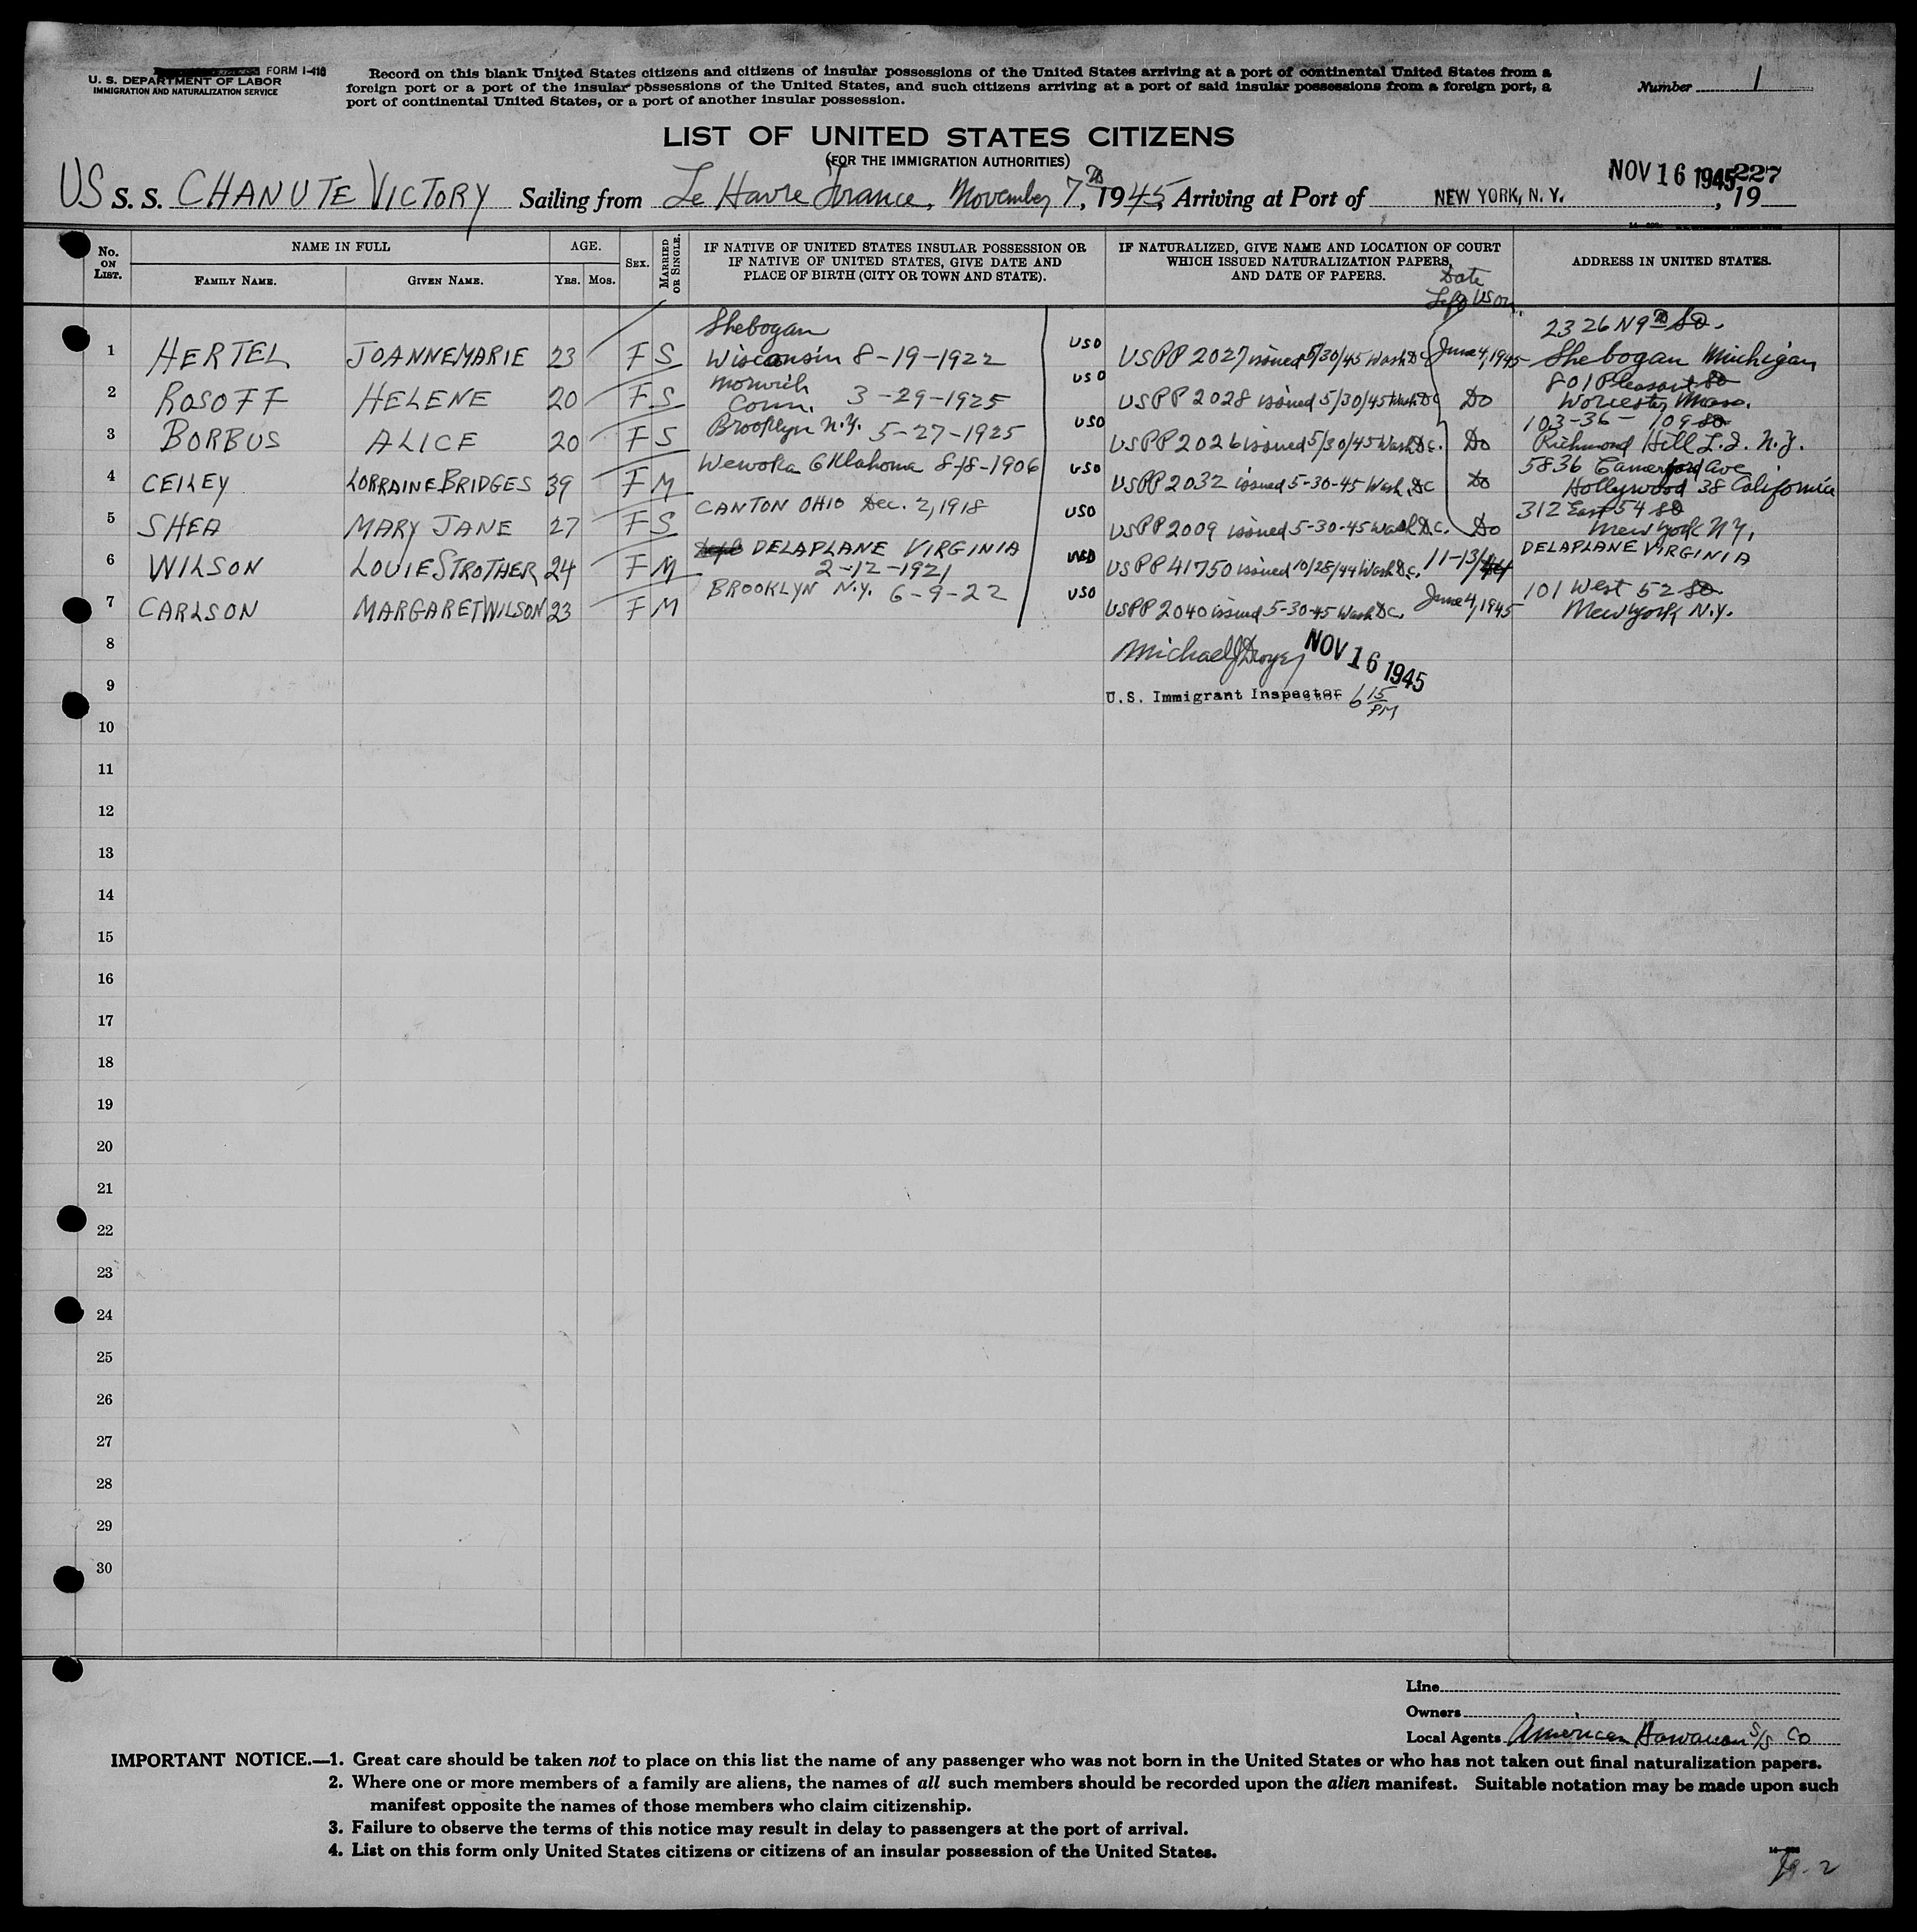 FORM I-418
U. S. DEPARTMENT OF LABOR
IMMIGRATION AND NATURALIZATION SERVICE
Record on this blank United States citizens and citizens of insular possessions of the United States arriving at a port of continental United States from a
foreign port or a port of the insular possessions of the United States, and such citizens arriving at a port of said insular possessions from a foreign port, a
port of continental United States, or a port of another insular possession.
Number 1
LIST OF UNITED STATES CITIZENS
(FOR THE IMMIGRATION AUTHORITIES)
US S. S. CHANUTE VICTORY Sailing from Le Havre France, November 7th, 1945, Arriving at Port of NEW YORK, N. Y. NOV 16 1945 227, 19
No. ON LIST.
NAME IN FULL
FAMILY NAME. GIVEN NAME.
AGE.
YRS. MOS.
SEX.
MARRIED OR SINGLE.
IF NATIVE OF UNITED STATES INSULAR POSSESSION OR
IF NATIVE OF UNITED STATES, GIVE DATE AND
PLACE OF BIRTH (CITY OR TOWN AND STATE).
IF NATURALIZED, GIVE NAME AND LOCATION OF COURT
WHICH ISSUED NATURALIZATION PAPERS,
AND DATE OF PAPERS.
Date
Left US on
ADDRESS IN UNITED STATES.
1 HERTEL JOANNEMARIE 23 F S Shebogan
Wisconsin 8-19-1922 USO USPP 2027 issued 5/30/45 Wash DC June 4, 1945 2326 N 9th St.
Shebogan Michigan
2 ROSOFF HELENE 20 F S Norwich
Conn. 3-29-1925 USO USPP 2028 issued 5/30/45 Wash. DC Do 801 Pleasant St
Worcester, Mass.
3 BORBUS ALICE 20 F S Brooklyn N.Y. 5-27-1925 USO USPP 2026 issued 5/30/45 Wash D.C. Do 103-36-109 St
Richmond Hill L.I. N.Y.
4 CEILEY LORRAINE BRIDGES 39 F M Wewoka Oklahoma 8-18-1906 USO USPP 2032 issued 5-30-45 Wash. DC Do 5836 Camerford Ave
Hollywood 38 California
5 SHEA MARY JANE 27 F S CANTON OHIO Dec. 2, 1918 USO USPP 2009 issued 5-30-45 Wash D.C. Do 312 East 54 St
New York NY.
6 WILSON LOUIE STROTHER 24 F M DELAPLANE VIRGINIA
2-12-1921 USPP 41750 issued 10/28/44 Wash D.C. 11-13/44 DELAPLANE VIRGINIA
7 CARLSON MARGARET WILSON 23 F M BROOKLYN N.Y. 6-9-22 USO USPP 2040 issued 5-30-45 Wash D.C. June 4, 1945 101 West 52 St.
New York N.Y.
8
Michael J
NOV 16 1945
9
U.S. Immigrant Inspector 6 15 PM
10
11
12
13
14
15
16
17
18
19
20
21
22
23
24
25
26
27
28
29
30
Line
Owners
Local Agents American Hawaiian S/S Co
IMPORTANT NOTICE.—1. Great care should be taken not to place on this list the name of any passenger who was not born in the United States or who has not taken out final naturalization papers.
2. Where one or more members of a family are aliens, the names of all such members should be recorded upon the alien manifest. Suitable notation may be made upon such
manifest opposite the names of those members who claim citizenship.
3. Failure to observe the terms of this notice may result in delay to passengers at the port of arrival.
4. List on this form only United States citizens or citizens of an insular possession of the United States.